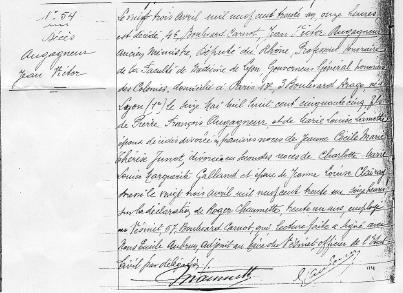 N° 54
Décès
Augagneur
Jean Victor
Le vingt trois avril mil neuf cent trente un, onze heures
est décédé, 4 Boulevard Carnot, Jean Victor Augagneur
ancien Ministre, Député du Rhône, Professeur honoraire
de la Faculté de Médecine de Lyon, Gouverneur Général honoraire
des Colonies, domicilié à Paris 3 Boulevard né à
Lyon le seize mai mil huit cent cinquante cinq, fils
de Pierre François Augagneur, et de
époux de divorcé en premières noces de Jeanne Cécile Marie
Thérèse Junot, divorcé en secondes noces de Charlotte Marie
Louise Marguerite Galland et époux de Jeanne Louise
Dressé le vingt trois avril mil neuf cent trente un, heures
sur la déclaration de Roger Chaumette, trente un ans, employé
au Vésinet, 57 Boulevard Carnot, qui lecture faite a signé avec
Nous Emile Aubrun, Adjoint au Maire du Vésinet officier de l'Etat
Civil par délégation
Chaumette